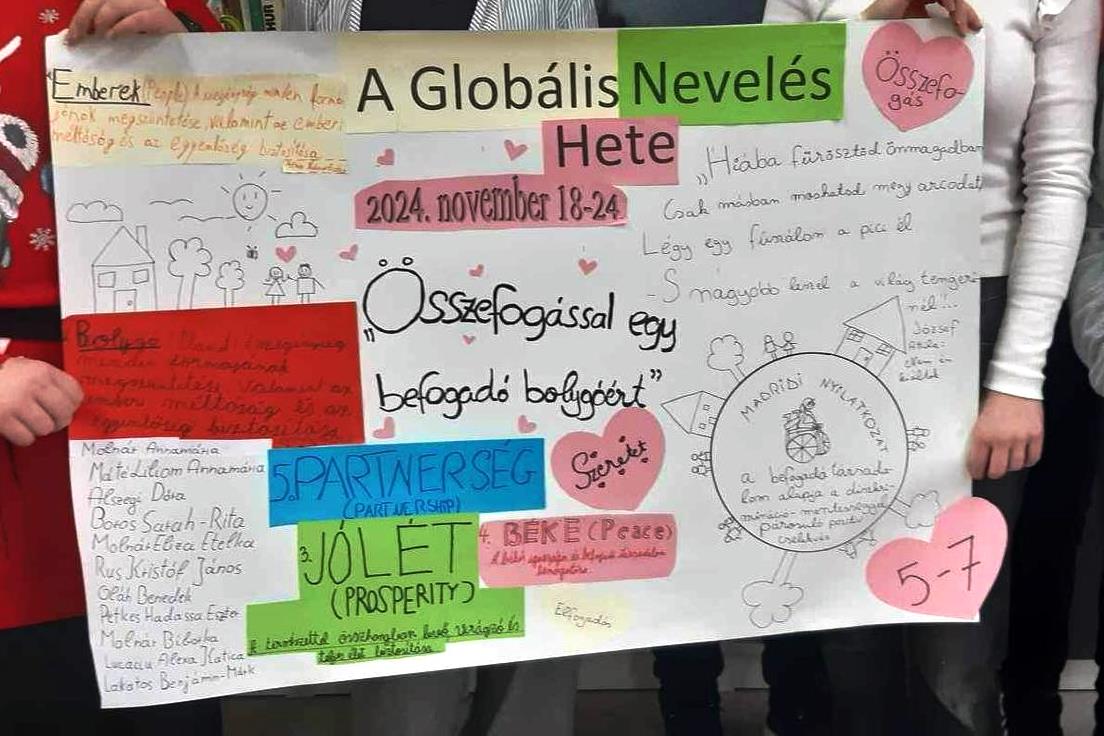 Emberek (People) A szegénység minden formájának megszüntetése, valamint az emberi
méltóság és az egyenlőség biztosítása
A Globális Nevelés
Hete
2024. november 18-24
Összefogás
„Hiába fürösztöd önmagadban
Csak másban moshatod meg arcodat
Légy egy fűszálon a pici él
S nagyobb leszel a világ tengelyénél!"
József
Attila:
Nem én
kiáltok
„Összefogással egy
befogadó bolygóért”
Bolygó
szegénység
minden formájának
megszüntetése valamint az
ember méltóság és az
egyenlőség biztosítása
Molnár Annamária
Máté Liliom Annamária
Alszegi Dóra
Boros Sarah-Rita
Molnár Eliza Etelka
Rus Kristóf János
Oláh Benedek
Petkes Hadassa Eszter
Molnár Biborka
Lucaciu Alexa Katica
Lakatos Benjámin-Márk
5. PARTNERSÉG
(PARTNERSHIP)
Szeretet
3. JÓLÉT
(PROSPERITY)
A természettel összhangban levő virágzó és
teljes élet biztosítása
4. BÉKE (Peace)
A békés igazságos és befogadó társadalom
támogatása
Elfogadás
MADRIDI NYILATKOZAT
a befogadó társada
lom alapja a diszkri-
mináció-mentességgel
párosuló pozitív
cselekvés
5-7